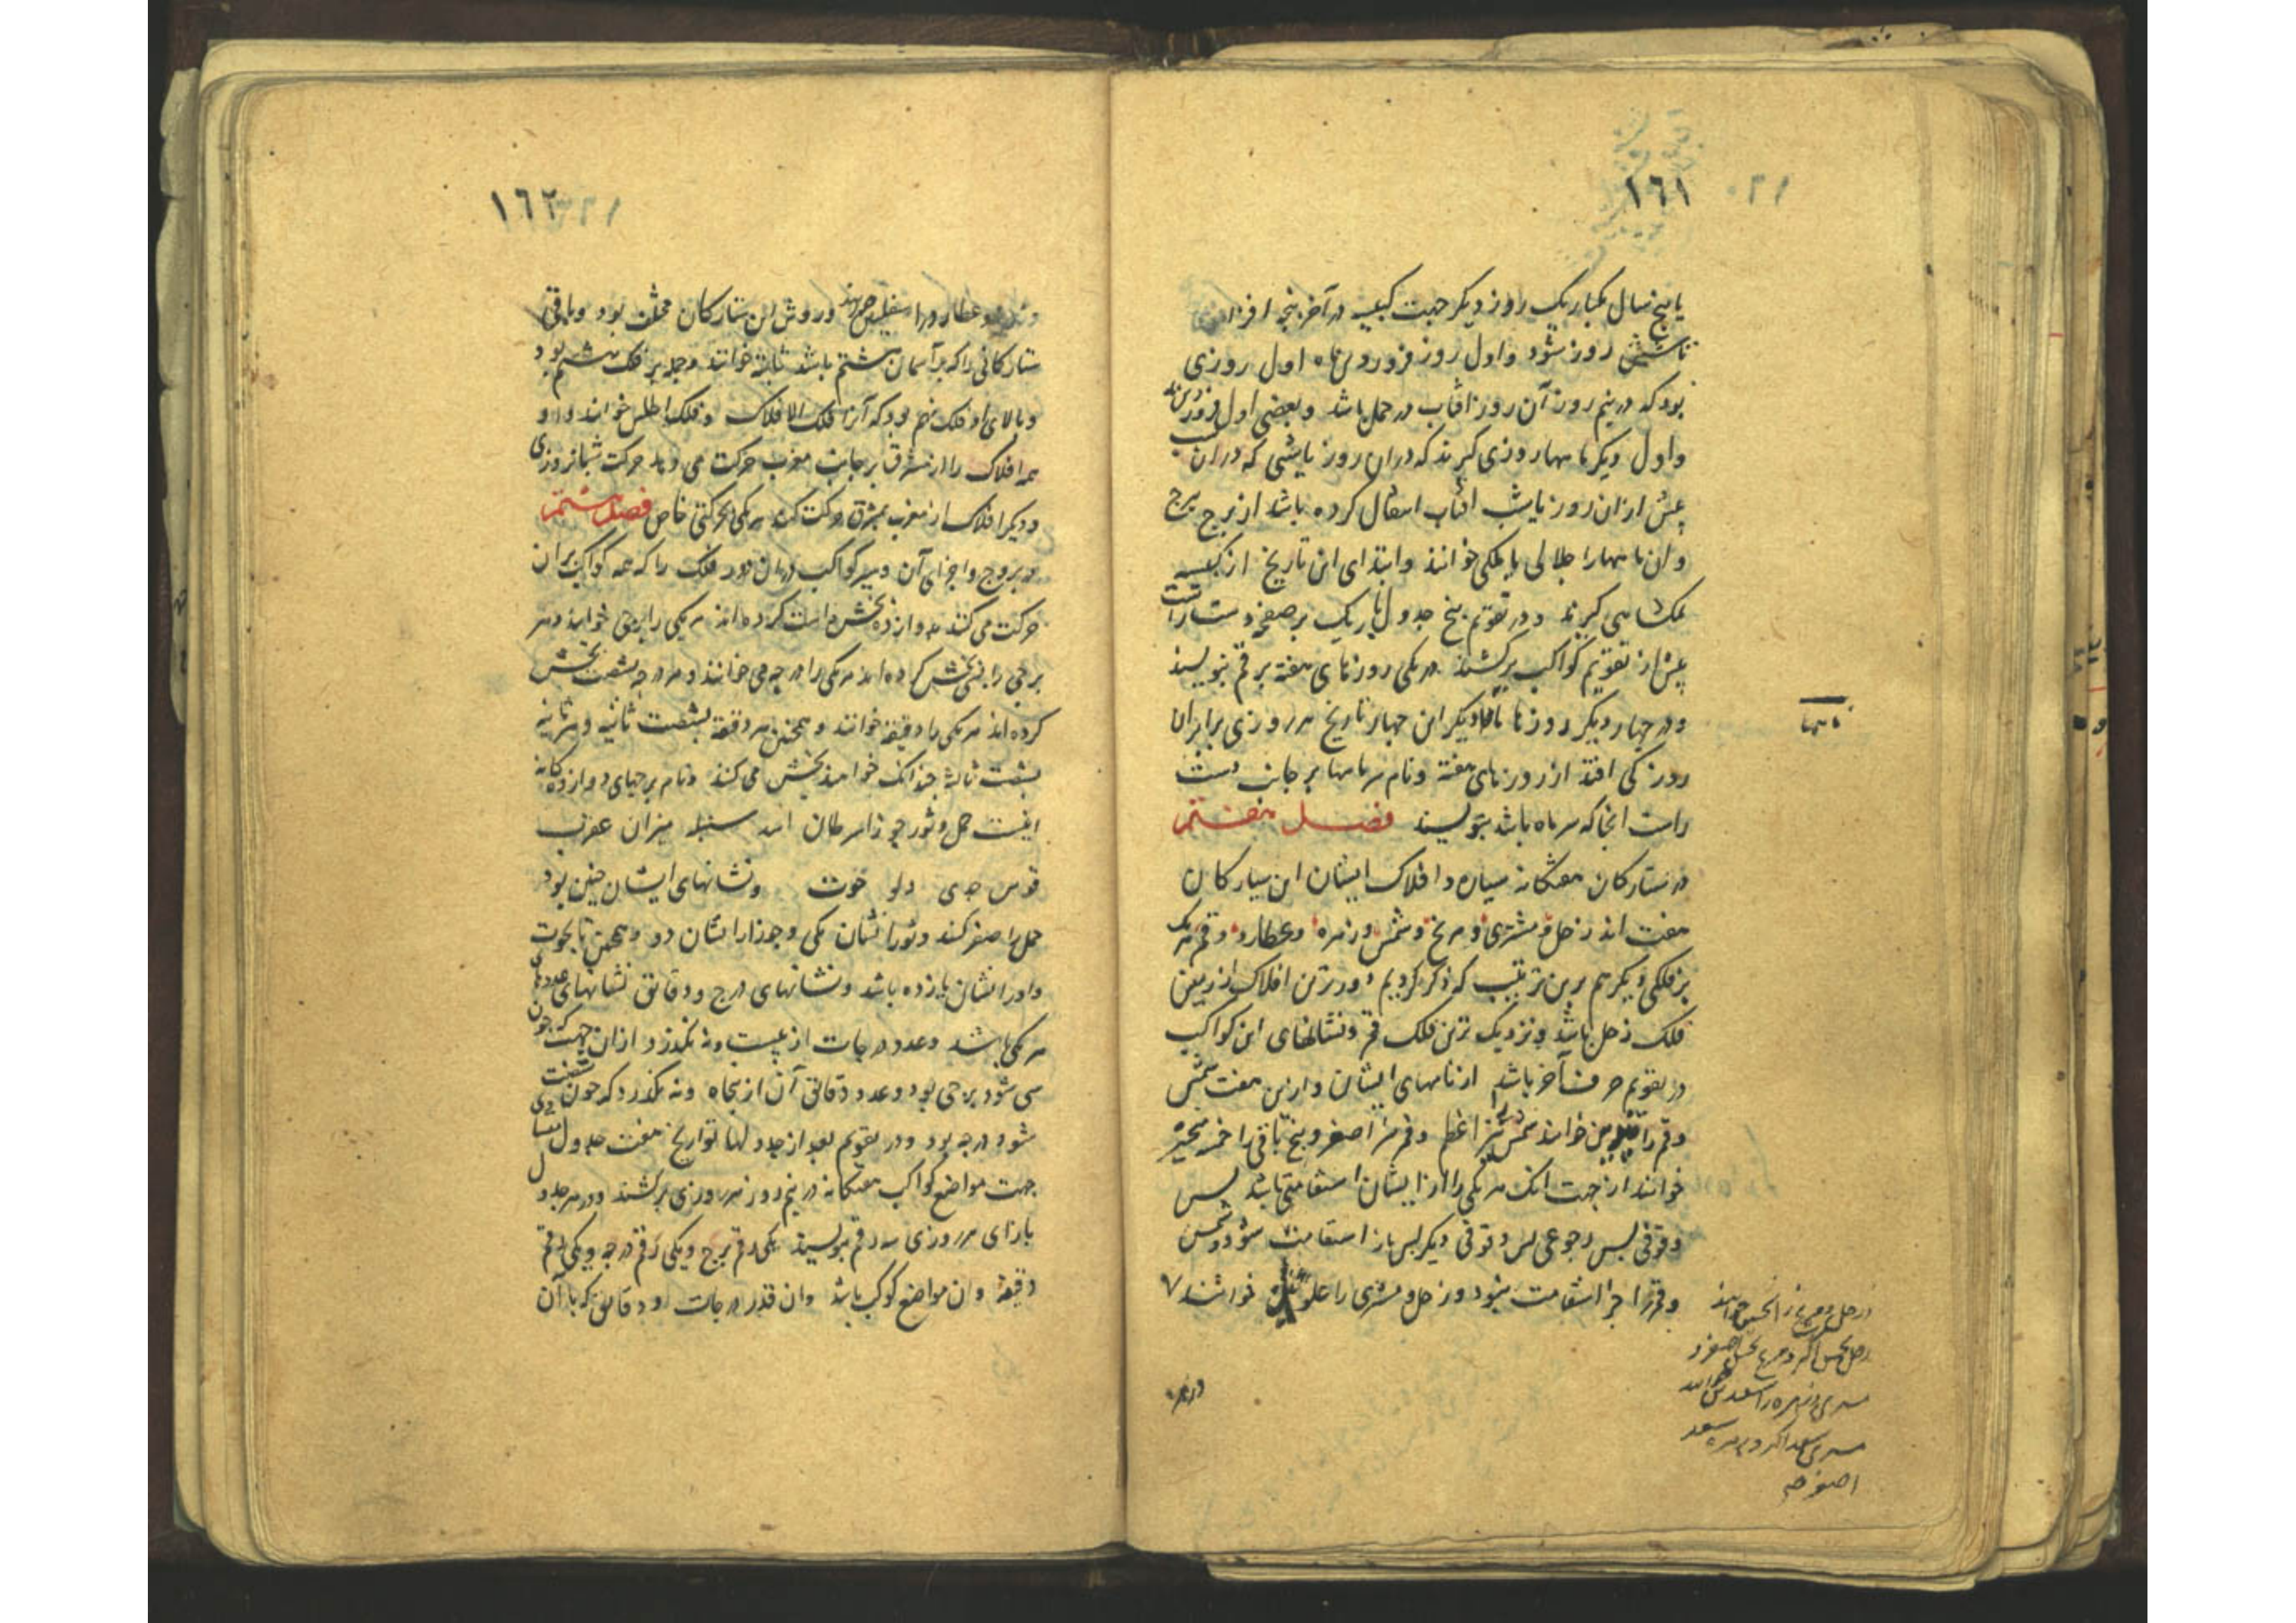 ١٦١
یا پنج سال یکبار یک روز دیگر جهت کبیسه در آخر پنجه افزایند
تا شش روز شود و اول روز فروردین ماه اول روزی
بود که در نیم روز آن روز افتاب در حمل باشد و بعضی اول فروردین ماه
و اول دیگر ماهها روزی گیرند که در ان روز یا شبی که در ان شب
پیش از ان روز باشد افتاب انتقال کرده باشد از برج ببرج
و ان ماهها را جلالی یا ملکی خوانند و ابتدای این تاریخ از کبیسه
ملکشاهی گیرند و در تقویم پنج جدول باریک بر صفحه دست راست
پیش از تقویم کواکب برکشند در یکی روزهای هفته برقم بنویسند
و در چهار دیگر روزها ماهها دیگر این چهار تاریخ هر روزی برابر ان
روز کی افتد از روزهای هفته و نام سر ماهها بر جانب دست
راست انجا که سر ماه باشد بنویسند فصل هفتم
در ستارگان هفتگانه سیاره و افلاک ایشان این سیارگان
هفت اند زحل و مشتری و مریخ و شمس و زهره و عطارد و قمر هر یک
بر فلکی دیگر هم برین ترتیب که ذکر کردیم دورترین افلاک از زمین
فلک زحل باشد و نزدیک ترین فلک قمر و نشانهای این کواکب
در تقویم حرف آخر باشد از نامهای ایشان و ازین هفت شمس
و قمر را نیرین خوانند شمس را نیر اعظم و قمر را اصغر و پنج باقی را خمسه متحیره
خوانند از جهت انک هر یکی را از ایشان استقامتی باشد پس
وقوفی پس رجوعی پس وقوفی دیگر پس باز استقامت شود و شمس
و قمر را جز استقامت نبود و زحل و مشتری را علوی خوانند ٧
ماهها
زحل و مریخ را نحسین خوانند
زحل نحس اکبر و مریخ نحس اصغر و
مشتری و زهره را سعدین خوانند
مشتری سعد اکبر و زهره سعد
اصغر صح
و زهره
١٦٢
و زهره و عطارد را سفلیین خوانند و روش این ستارگان مختلف بود و باقی
ستارگانی را که بر آسمان هشتم باشد ثابته خوانند و جمله بر فلک هشتم بود
و بالای او فلک نهم بود که آنرا فلک الافلاک و فلک اطلس خوانند و او
همه افلاک را از مشرق بر جانب مغرب حرکت می دهد حرکت شبانروزی
و دیگر افلاک از مغرب بمشرق حرکت کنند هر یکی بحرکتی خاص فصل هشتم
در بروج و اجزای آن و سیر کواکب در ان دور فلک را که همه کواکب بر ان
حرکت می کنند بدوازده بخش راست کرده اند هر یکی را برجی خوانند و هر
برجی را بسی بخش کرده اند هر یکی را درجه می خوانند و هر درجه بشصت بخش
کرده اند هر یکی را دقیقه خوانند و همچنین هر دقیقه بشصت ثانیه و هر ثانیه
بشصت ثالثه چندانک خواهند بخش می کنند و نام برجهای دوازده گانه
اینست حمل و ثور جوزا سرطان اسد سنبله میزان عقرب
قوس جدی دلو حوت و نشانهای ایشان چنین بود
حمل را صفر کنند و ثور را نشان یکی و جوزا را نشان دو و همچنین تا بحوت
و او را نشان یازده باشد و نشانهای درج و دقائق نشانهای عددهای
هر یکی باشد و عدد درجات از بیست و نه نگذرد از ان جهت که چون
سی شود برجی بود و عدد دقائق آن از پنجاه و نه نگذرد که چون شصت
شود درجه بود و در تقویم بعد از جدولها تواریخ هفت جدول متساوی
جهت مواضع کواکب هفتگانه در نیم روز هر روزی برکشند و در هر جدول
بازای هر روزی سه رقم بنویسند یکی رقم برج و یکی رقم درجه و یکی رقم
دقیقه و ان مواضع کوکب باشد و ان قدر درجات و دقائق که با آن